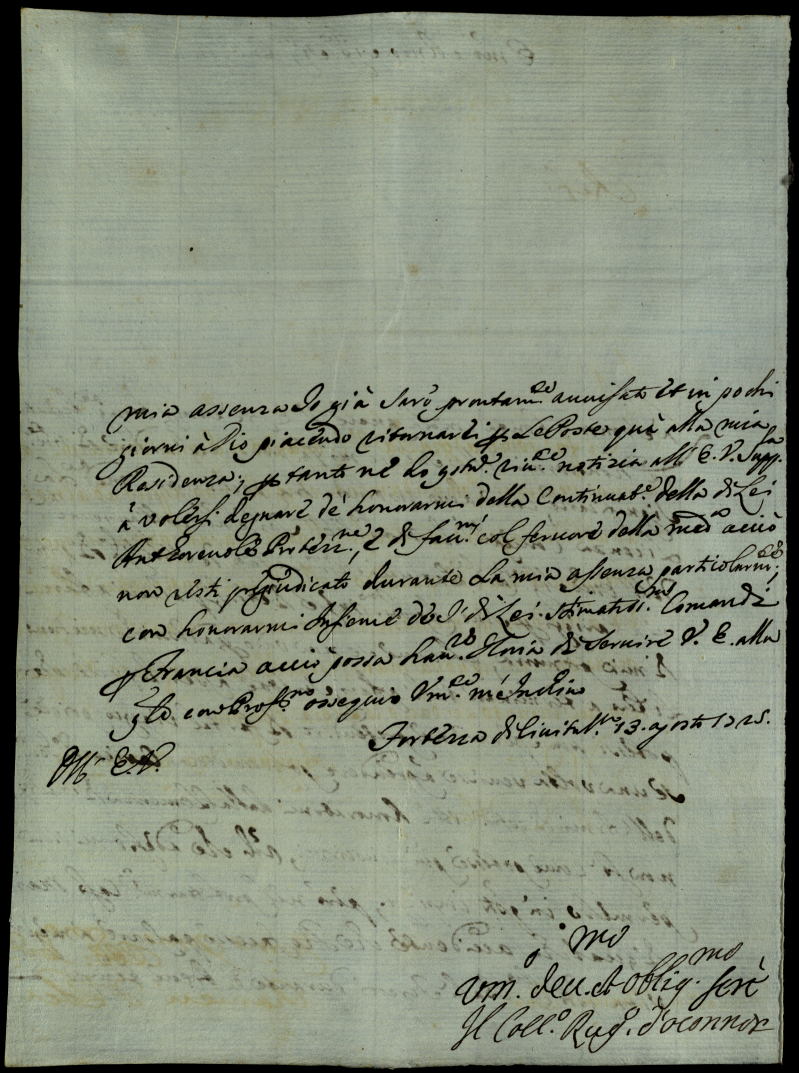 mia assenza Io già sarò prontam.te auuisato et in pochi
giorni à Dio piacendo ritornarei p Le Poste quà alla mia
Residenza; p tanto nè Lo riu.te notizia all' E. V. Supp.la
à volersi degnare de honorarmi della Continuat.e della di Lei
Autoreuole Protez.ne, e di fau.mi col feruore della med.a acciò
non resti pregiudicato durante La mia assenza particolarm.te;
con honorarmi Insieme de i di Lei stimatis.mi Comandi
p Francia acciò possa hau.re Gloria di Seruire V. E. alla
q.le con Prof.mo ossequio Vm.te m'Inclino
Fortezza di Ciuita V.a 13. agosto 1725.
All' E. V.
vm.o deu.mo et oblig.mo serè
Il Coll.o Rug.o d'oconnor